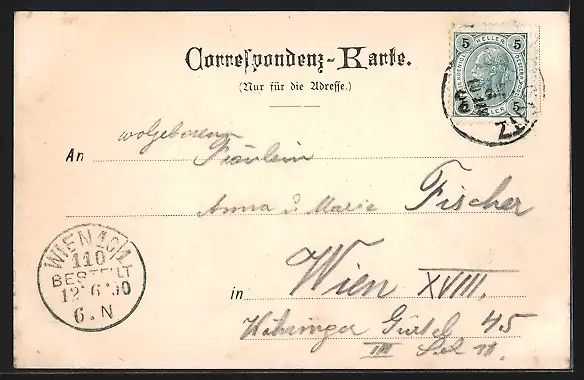 Correspondenz-Karte.
(Nur für die Adresse.)
5 HELLER 5
5 5
wolgeboren
An Fräulein
Anna u Marie Fischer
in Wien XVIII.
Währinger Gürtel 45
III
WIEN 10/1
110
BESTELLT
12 6 00
6. N